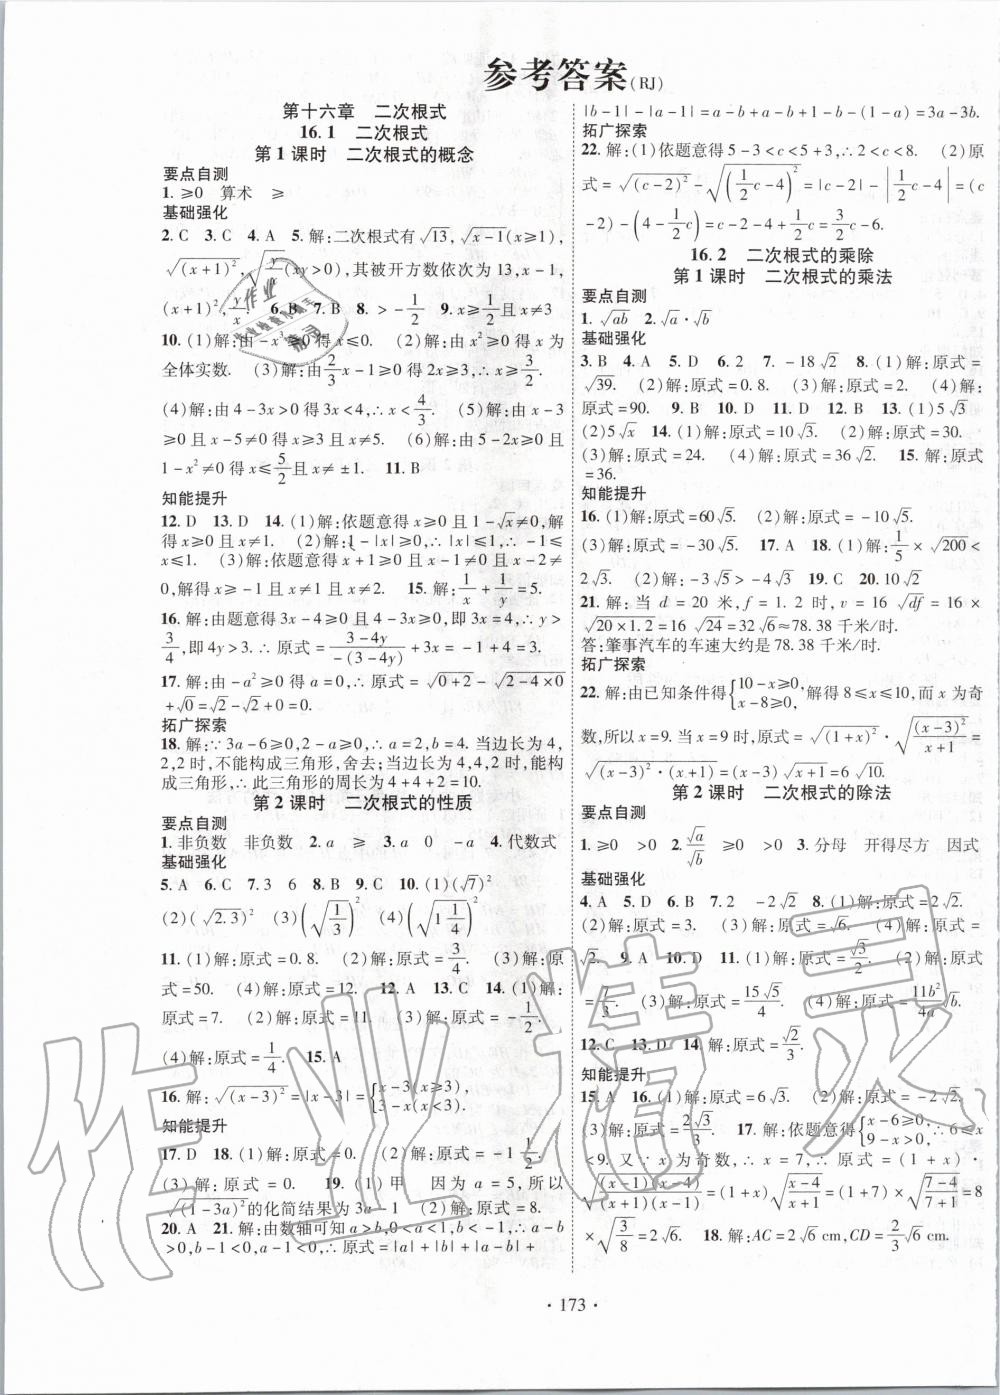 参考答案(RJ)
第十六章 二次根式
16.1 二次根式
第1课时 二次根式的概念
要点自测
1. ≥0 算术 ≥
基础强化
2. C 3. C 4. A 5. 解:二次根式有√13,√(x-1)(x≥1),
√((x+1)²),√(y/x)(xy>0),其被开方数依次为13,x-1,
(x+1)²,y/x. 6. B 7. B 8. >-1/2 9. x≥1且x≠3
10. (1)解:由-x³≥0得x≤0. (2)解:由x²≥0得x为
全体实数. (3)解:由2/3x-1≥0得2x≥3,∴x≥3/2.
(4)解:由4-3x>0得3x<4,∴x<4/3. (5)解:由x-3
≥0且x-5≠0得x≥3且x≠5. (6)解:由5-2x≥0且
1-x²≠0得x≤5/2且x≠±1. 11. B
知能提升
12. D 13. D 14. (1)解:依题意得x≥0且1-√x≠0,解
得x≥0且x≠1. (2)解:1-|x|≥0,∴|x|≤1,∴-1≤
x≤1. (3)解:依题意得x+1≥0且1-x≠0且x-2≠
0,解得x≥-1且x≠1且x≠2. 15. 解:1/x+1/y=5.
16. 解:由题意得3x-4≥0且4-3x≥0,∴x=4/3,∴y>
3/4,即4y>3,∴原式=(3-4y)/(-(3-4y))+3x=-1+4=3.
17. 解:由-a²≥0得a=0,∴原式=√(0+2)-√(2-4×0)
+√0=√2-√2+0=0.
拓广探索
18. 解:∵3a-6≥0,2-a≥0,∴a=2,b=4. 当边长为4,
2,2时,不能构成三角形,舍去;当边长为4,4,2时,能构
成三角形,∴此三角形的周长为4+4+2=10.
第2课时 二次根式的性质
要点自测
1. 非负数 非负数 2. a ≥ 3. a 0 -a 4. 代数式
基础强化
5. A 6. C 7. 3 6 8. B 9. C 10. (1)(√7)²
(2)(√2.3)² (3)(√(1/3))² (4)(√(1 1/4))²
11. (1)解:原式=0.8. (2)解:原式=3/4. (3)解:原
式=50. (4)解:原式=12. 12. A 13. C 14. (1)解:
原式=7. (2)解:原式=11. (3)解:原式=-1/2.
(4)解:原式=1/4. 15. A
16. 解:√((x-3)²)=|x-3|={x-3(x≥3), 3-x(x<3).
知能提升
17. D 18. (1)解:原式=0. (2)解:原式=-1 1/2.
(3)解:原式=0. 19. (1)甲 因为a=5,所以
√((1-3a)²)的化简结果为3a-1 (2)解:原式=8.
20. A 21. 解:由数轴可知a>b,0<a<1,b<-1,∴a-b
>0,b-1<0,a-1<0,∴原式=|a|+|b|+|a-b|+
|b-1|-|a-1|=a-b+a-b+1-b-(1-a)=3a-3b.
拓广探索
22. 解:(1)依题意得5-3<c<5+3,∴2<c<8. (2)原
式=√((c-2)²)-√((1/2c-4)²)=|c-2|-|1/2c-4|=(c
-2)-(4-1/2c)=c-2-4+1/2c=3/2c-6.
16.2 二次根式的乘除
第1课时 二次根式的乘法
要点自测
1. √ab 2. √a·√b
基础强化
3. B 4. A 5. D 6. 2 7. -18√2 8. (1)解:原式=
√39. (2)解:原式=0.8. (3)解:原式=2. (4)解:
原式=90. 9. B 10. D 11. B 12. D 13. (1)5√3
(2)5√x 14. (1)解:原式=10√3. (2)解:原式=30.
(3)解:原式=24. (4)解:原式=36√2. 15. 解:原式
=36.
知能提升
16. (1)解:原式=60√5. (2)解:原式=-10√5.
(3)解:原式=-30√5. 17. A 18. (1)解:1/5×√200<
2√3. (2)解:-5√3>-4√3 19. C 20. 10√2
21. 解:当d=20米,f=1.2时,v=16√df=16×
√(20×1.2)=16√24=32√6≈78.38千米/时.
答:肇事汽车的车速大约是78.38千米/时.
拓广探索
22. 解:由已知条件得{10-x≥0, x-8≥0,解得8≤x≤10,而x为奇
数,所以x=9. 当x=9时,原式=√((1+x)²)·√((x-3)²/(x+1))
=√((x-3)²·(x+1))=√((9-3)²×(9+1))=6√10
第2课时 二次根式的除法
要点自测
1. ≥0 >0 2. √a/√b ≥0 >0 3. 分母 开得尽方 因式
基础强化
4. A 5. D 6. D 7. B 8. -2√2 8. (1)解:原式=2√2.
(2)解:原式=3. (3)解:原式=√6. (4)解:原式=
√2. 9. A 10. D 11. (1)解:原式=√3/2. (2)解:原式=
7/3. (3)解:原式=15√5/4. (4)解:原式=11b²/4a√b.
12. C 13. D 14. 解:原式=√2/3.
知能提升
15. A 16. (1)解:原式=2. (2)解:原式=-2√2.
(3)解:原式=2√3/3. 17. 解:依题意得{x-6≥0, 9-x>0,∴6≤x
<9. 又∵x为奇数,∴x=7,∴原式=(1+x)·
√((x-1)(x-4)/(x+1)(x-1))=(1+x)√((x-4)/(x+1))=(1+7)×√((7-4)/(7+1))=8
×√(3/8)=2√6. 18. 解:AC=2√6 cm,CD=2/3√6 cm.
· 173 ·
作业精灵